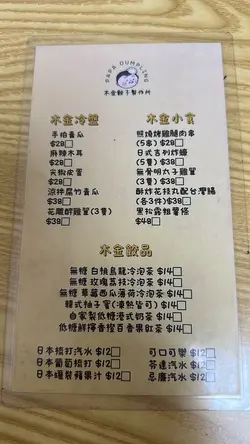 PAPA DUMPLING
木金餃子製作所
木金冷盤
手拍青瓜
$28□
麻辣木耳
$28□
尖椒皮蛋
$28□
涼拌腐竹青瓜
$38□
花雕醉雞(3隻)
$38□
木金小食
照燒烤雞腿肉串
(5串) $28□
日式吉列炸蠔
(5隻) $38□
無骨明太子雞翼
(3隻) $38□
酥炸花枝丸配台灣腸
(各3件)$38□
黑松露粗薯條
$48□
木金飲品
無糖 白桃烏龍冷泡茶 $14□
無糖 玫瑰荔枝冷泡茶 $14□
無糖 草莓西瓜薄荷冷泡茶 $14□
韓式柚子蜜(凍熱皆可) $14□
自家製低糖港式奶茶 $14□
低糖鮮檸香橙百香果紅茶 $14□
日本梳打汽水 $12□
日本葡萄梳打 $12□
日本罐裝蘋果汁 $12□
可口可樂 $12□
芬達汽水 $12□
忌廉汽水 $12□